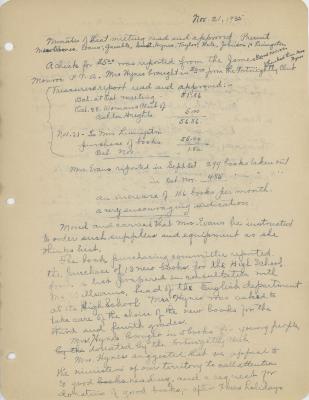 Nov 21, 1935
Minutes of last meeting read and approved. Present
Evans, Gamble, Hynes, Taylor, Hale, Johnson, & Livingston
A check for $5.00 was reported from the James
Monroe P.T.A. Mrs Hynes brought in from the Fortnightly Club
Treasurers report read and approved:-
Bal. at last meeting
Oct. 28. Womans Club of
Heights 5.00
56.86
Nov. 21 - To Mrs Livingston
purchase of books
Bal. Nov.
Mrs. Evans reported in Sept. 299 books taken out
in Oct. 485 " " "
an increase of 186 books per month.
a very encouraging indication.
Moved and carried that Mrs. Evans be instructed
to order such supplies and equipment as she
thinks best.
The book purchasing committee reported
the purchase of 13 new books for the High School,
from a list prepared in consultation with
Mr. Williams, head of the English department
at the High School. Mrs. Hynes was asked to
take care of the choice of the new books for the
third and fourth grades.
Mrs. Hynes brought in books for young people,
donated by the Fortnightly Club
Mrs. Hynes suggested that we appeal to
the ministers of our territory to call attention
to good books reading, and a request for
donations of good books, after Xmas holidays